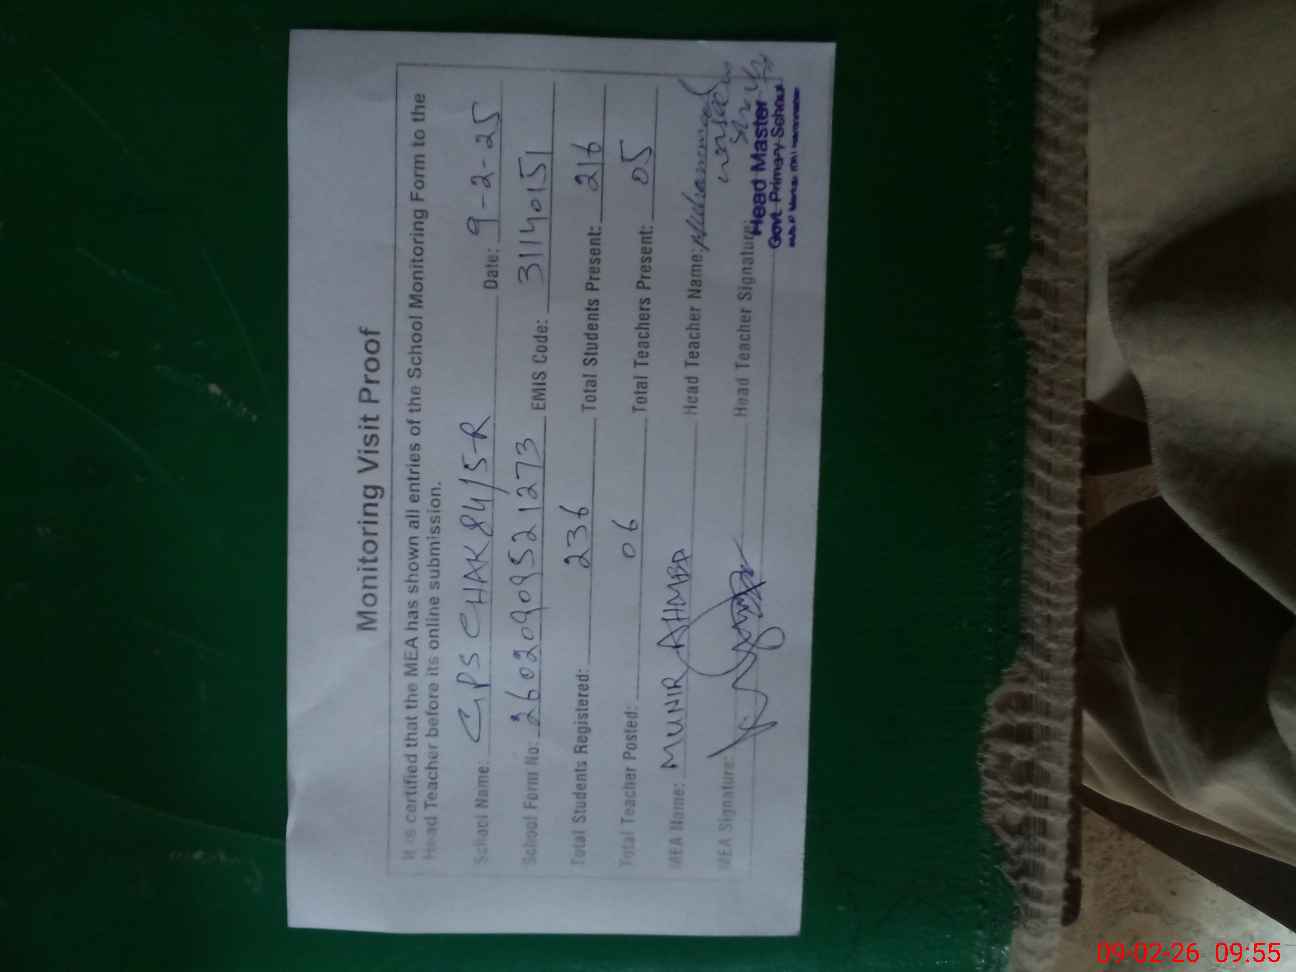 Monitoring Visit Proof
It is certified that the MEA has shown all entries of the School Monitoring Form to the
Head Teacher before its online submission.
School Name: GPS CHAK 84/5-R Date: 9-2-25
School Form No: 26020909521273 EMIS Code: 31140151
Total Students Registered: 236 Total Students Present: 216
Total Teacher Posted: 06 Total Teachers Present: 05
MEA Name: MUNIR AHMAD Head Teacher Name: Muhammad
MEA Signature: Head Teacher Signature:
Head Master
Govt. Primary School
09-02-26 09:55